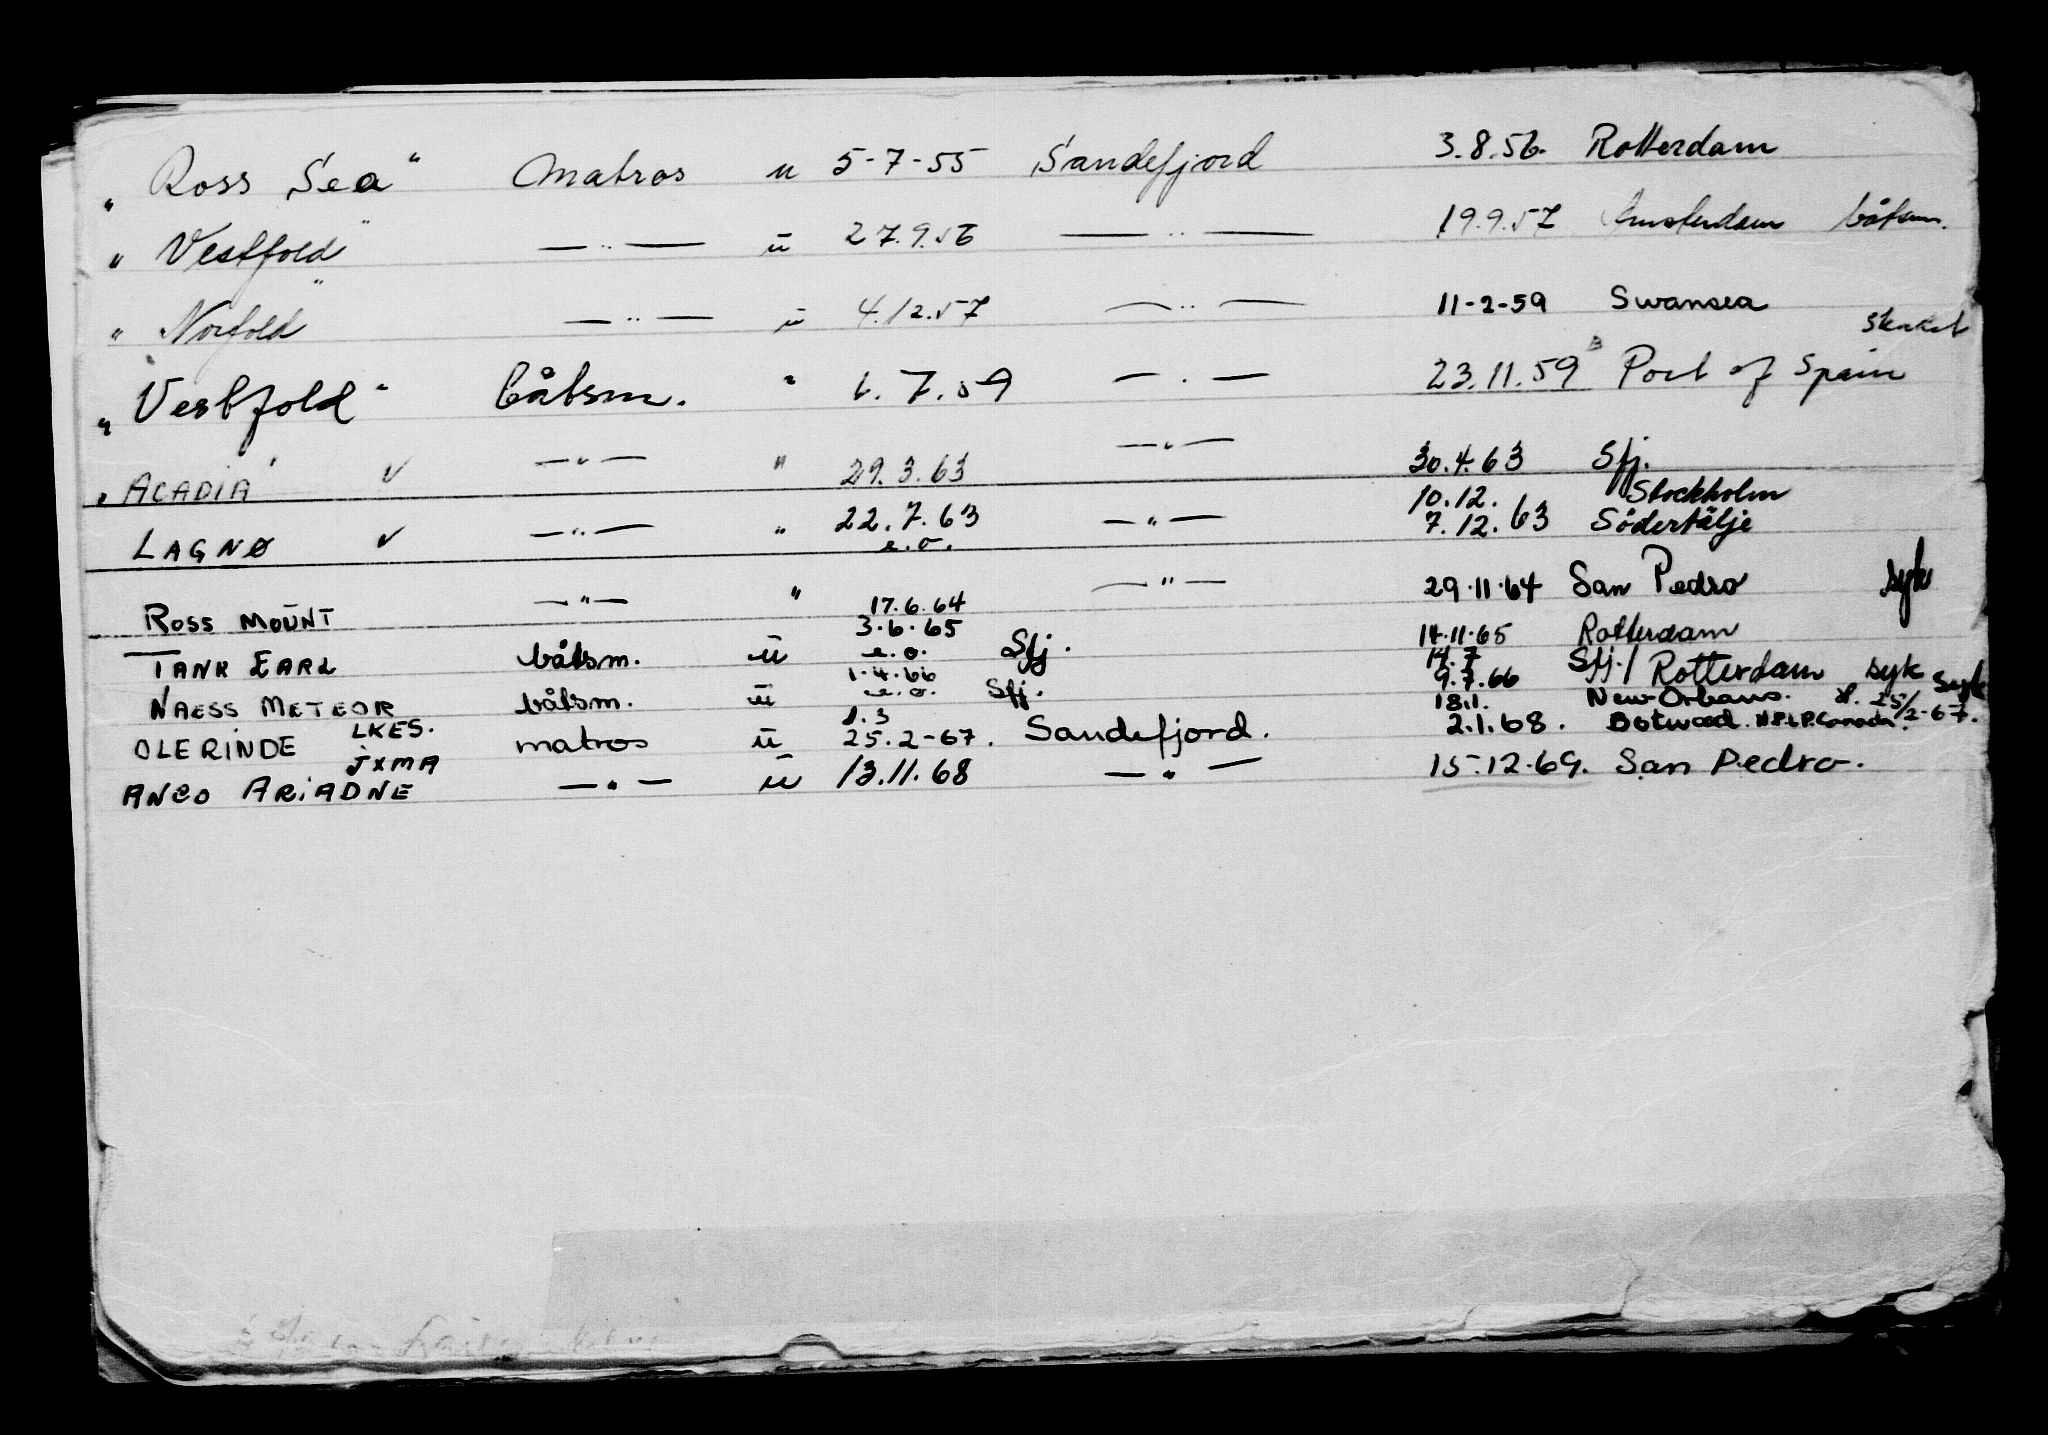 „ Ross Sea" Matros u 5-7-55 Sandefjord 3.8.56. Rotterdam
„ Vestfold" —"— u 27.9.56 —"— 19.9.57 Amsterdam båtsm.
„ Norfold" —"— u 4.12.57 —"— 11-2-59 Swansea
„ Vestfold" båtsm. " 1.7.59 —"— 23.11.59 Port of Spain
„ ACADIA" ✓ —"— " 29.3.63 —"— 30.4.63 Sfj.
10.12. Stockholm
LAGNØ ✓ —"— " 22.7.63 —"— 7.12.63 Södertälje
e.o.
ROSS MOUNT —"— " 17.6.64 —"— 29.11.64 San Pedro syk
3.6.65 14.11.65 Rotterdam
TANK EARL båtsm. u e.o. Sfj. 14.7 Sfj./
1.4.66 9.7.66 Rotterdam syk
NAESS METEOR båtsm. u e.o. Sfj. 18.1. New Orleans. 25/2-67. syk
LKES. 1.3
OLE RINDE matros u 25.2-67. Sandefjord. 2.1.68. Botwood. N.F.L.P. Canada.
JXMA
ANCO ARIADNE —"— u 13.11.68 —"— 15.12.69. San Pedro.